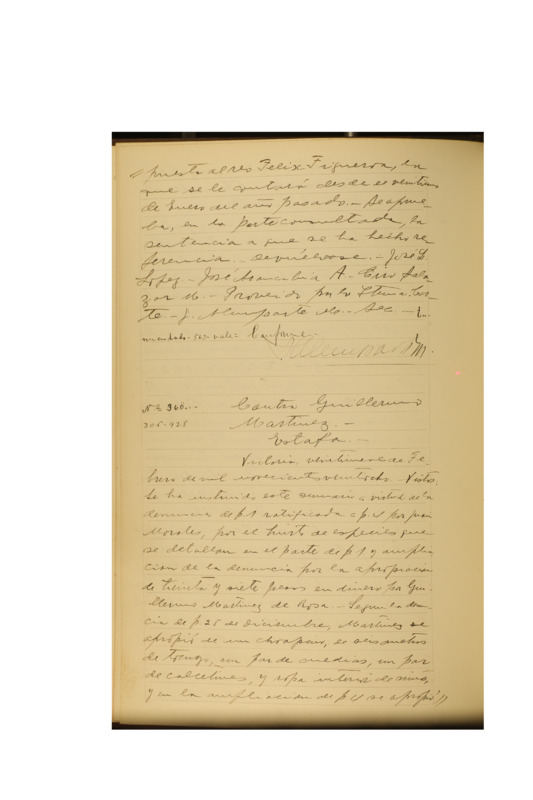 puesta al reo Felix Figueroa, la
que se le contará desde el veintiuno
de Enero del año pasado.- Se aprue-
ba, en la parte consultada, la
sentencia a que se ha hecho re
ferencia.- Devuélvase.- José L.
Lopez - José A. - Ciro Sala-
zar M. - Proveido por la Iltma. Cor-
te - J. Alemparte M. - Sec. - En-
mendado - vale = Conforme.-
Alemparte M.
Nº 360...
Contra Guillermo
306-928
Martinez.-
Estafa.-
Victoria, veintinueve de Fe-
brero de mil novecientos veintiocho.- Vistos,
Se ha instruido este sumario a virtud de la
denuncia de f. 1 ratificada a f. 4 por Juan
Morales, por el hurto de especies que
se detallan en el parte de f. 1 y amplia
cion de la denuncia por la apropiacion
de treinta y siete pesos en dinero por Gui-
llermo Martinez de Rosa.- Segun la denun
cia el de Diciembre, Martinez se
apropió de un , de seis metros
de , un par de medias, un par
de calcetines, y ropa interior de niña,
y en la ampliacion de f. 4 se apropió